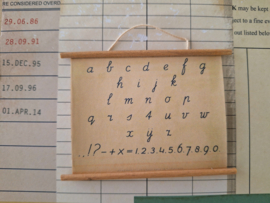 RE CONSIDERED OVERD
29.06.86
28.09.91
15.DEC.95
17.09.96
01.APR.14
K may be kept
ject to a fine o
out listed below
a b c d e f g
h i j k
l m n o p
q r s t u v w
x y z
..!?-+x=1.2.3.4.5.6.7.8.9.0